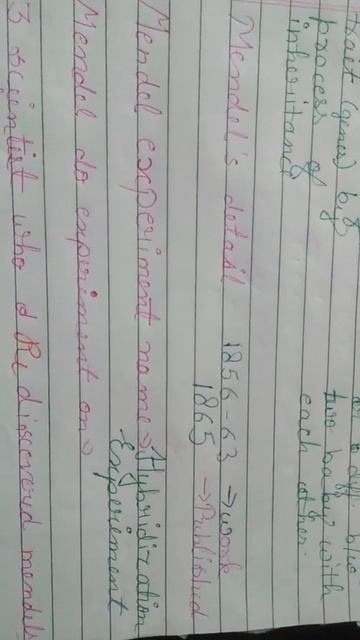 trait (genes) by
process of
inheritance
two baby with
each other.
Mendel's detail 1856-63 → work
1865 → Published
Mendel experiment name → Hybridization
Experiment
Mendel do experiment on →
3 scientist who d Rediscoverd mendels